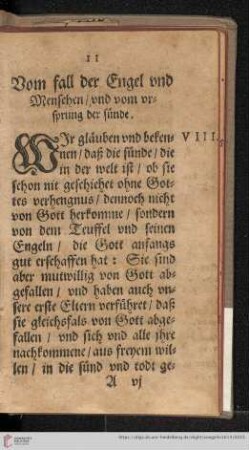 11
Vom fall der Engel vnd
Menschen / vnd vom vr-
sprung der sünde.
WIr gläuben vnd beken- VIII.
nen / daß die sünde / die
in der welt ist / ob sie
schon nit geschiehet ohne Got-
tes verhengnus / dennoch nicht
von Gott herkomme / sondern
von dem Teuffel vnd seinen
Engeln / die Gott anfangs
gut erschaffen hat: Sie sind
aber mutwillig von Gott ab-
gefallen / vnd haben auch vn-
sere erste Eltern verführet / daß
sie gleichsfals von Gott abge-
fallen / vnd sich vnd alle jhre
nachkommene / aus freyem wil-
len / in die sünd vnd todt ge-
A vj